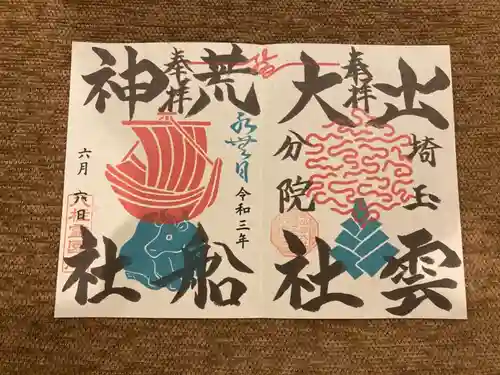 奉拝
出雲
大社
埼玉
分院
奉拝
荒船
神社
水無月
令和三年
六月六日